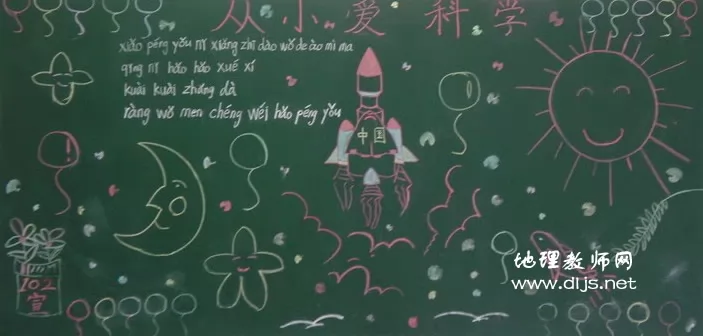 从小爱科学
xiǎo péng yǒu nǐ xiǎng zhī dào wǒ de ào mì ma
qǐng nǐ hǎo hǎo xué xí
kuài kuài zhǎng dà
ràng wǒ men chéng wéi hǎo péng yǒu
中国
102
宣
地理教师网
www.dljs.net